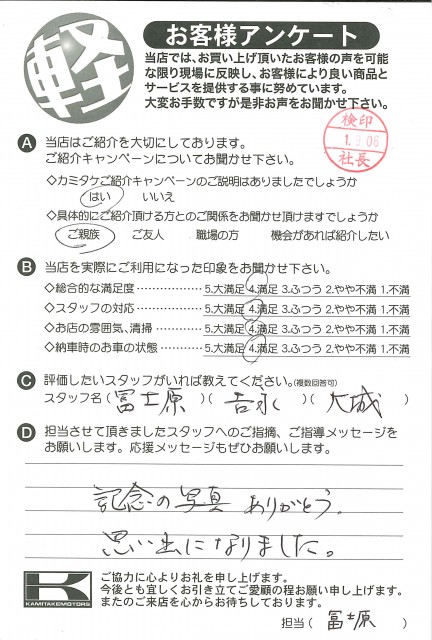 軽
お客様アンケート
当店では、お買い上げ頂いたお客様の声を可能
な限り現場に反映し、お客様により良い商品と
サービスを提供する事に努めています。
大変お手数ですが是非お声をお聞かせ下さい。
検印
1.9.06
社長
A 当店はご紹介を大切にしております。
ご紹介キャンペーンについてお聞かせ下さい。
◇カミタケご紹介キャンペーンのご説明はありましたでしょうか
はい いいえ
◇具体的にご紹介頂ける方とのご関係をお聞かせ頂けますでしょうか
ご親族 ご友人 職場の方 機会があれば紹介したい
B 当店を実際にご利用になった印象をお聞かせ下さい。
◇総合的な満足度 ……………… 5.大満足 4.満足 3.ふつう 2.やや不満 1.不満
◇スタッフの対応 ……………… 5.大満足 4.満足 3.ふつう 2.やや不満 1.不満
◇お店の雰囲気、清掃 ………… 5.大満足 4.満足 3.ふつう 2.やや不満 1.不満
◇納車時のお車の状態 ………… 5.大満足 4.満足 3.ふつう 2.やや不満 1.不満
C 評価したいスタッフがいれば教えてください。(複数回答可)
スタッフ名(冨士原)(吉永)(大城)
D 担当させて頂きましたスタッフへのご指摘、ご指導メッセージを
お願いします。応援メッセージもぜひお願いします。
記念の写真 ありがとう。
思い出になりました。
K
KAMITAKEMOTORS
ご協力に心よりお礼を申し上げます。
今後とも宜しくお引き立てご愛顧の程お願い申し上げます。
またのご来店を心からお待ちしております。
担当(冨士原)